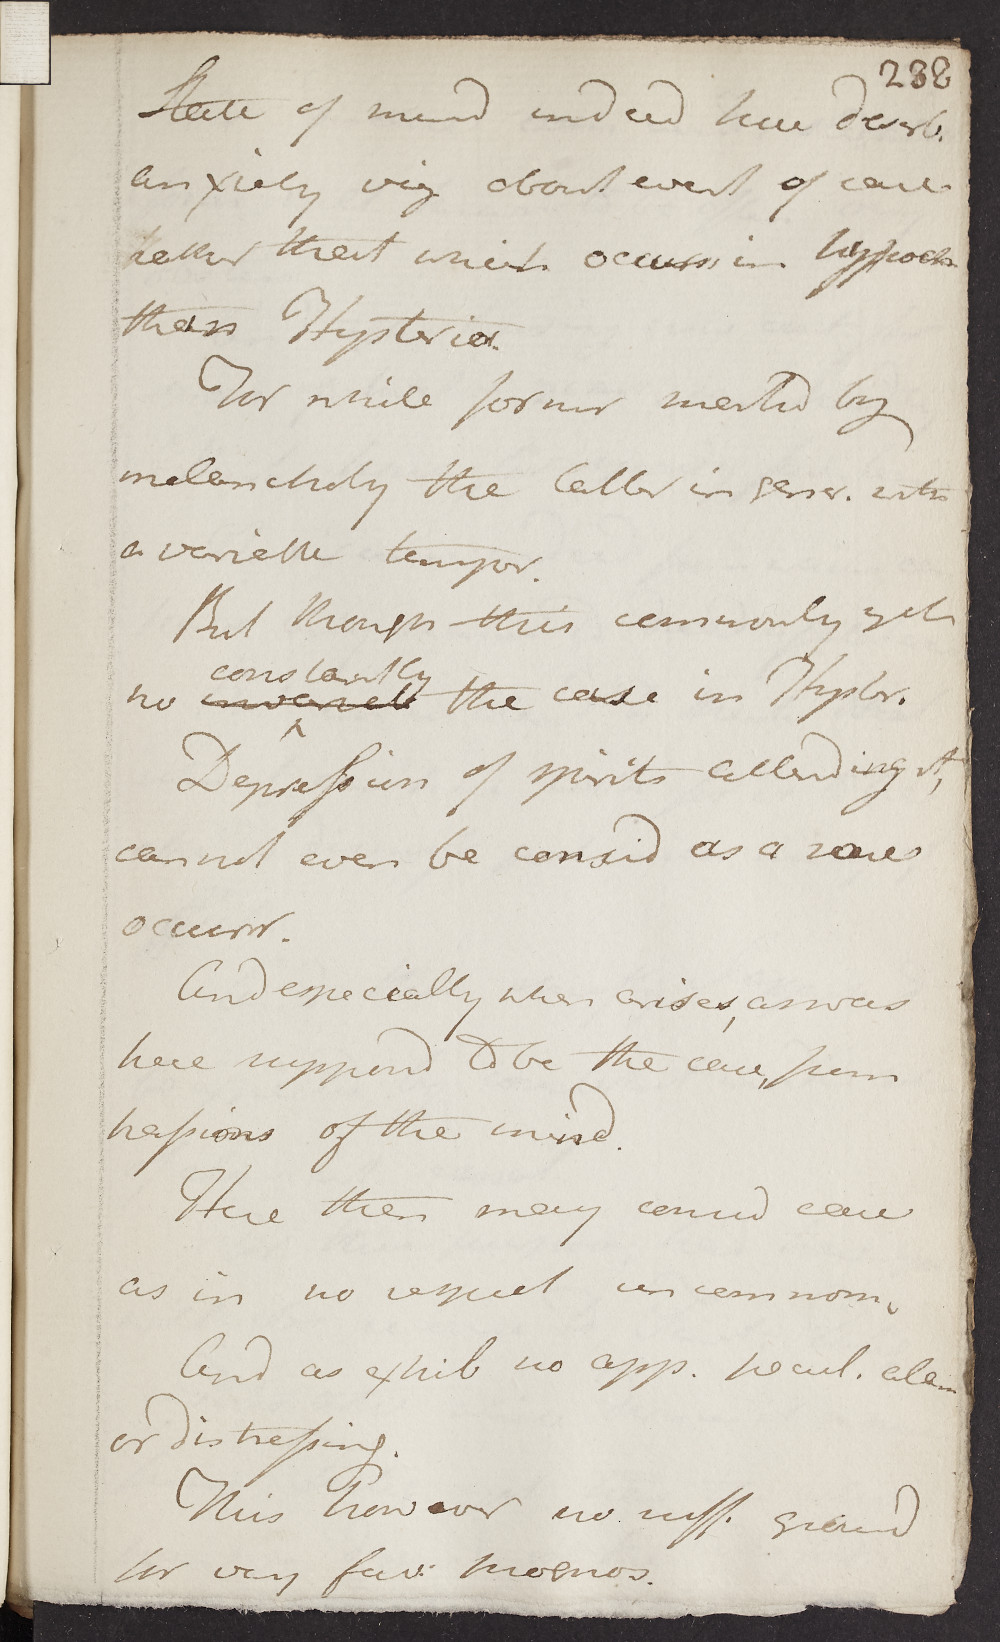 238
State of mind indeed here descrb.
anxiety viz about event of case
rather that which occurs in hypoch
than Hysteria.
For while former markd by
melancholy the latter in gener. with
a variable temper.
But though this commonly yet
constantly
no invariab the case in Hyster.
Depression of spirits attending it,
cannot even be consid as a rare
occurr.
And especially when arises, as was
here supposd to be the case, from
passions of the mind.
Here then may consid case
as in no respect uncommon,
And as exhib no app. pecul. alarm
or distressing.
This however no suff. ground
for very fav. prognos.